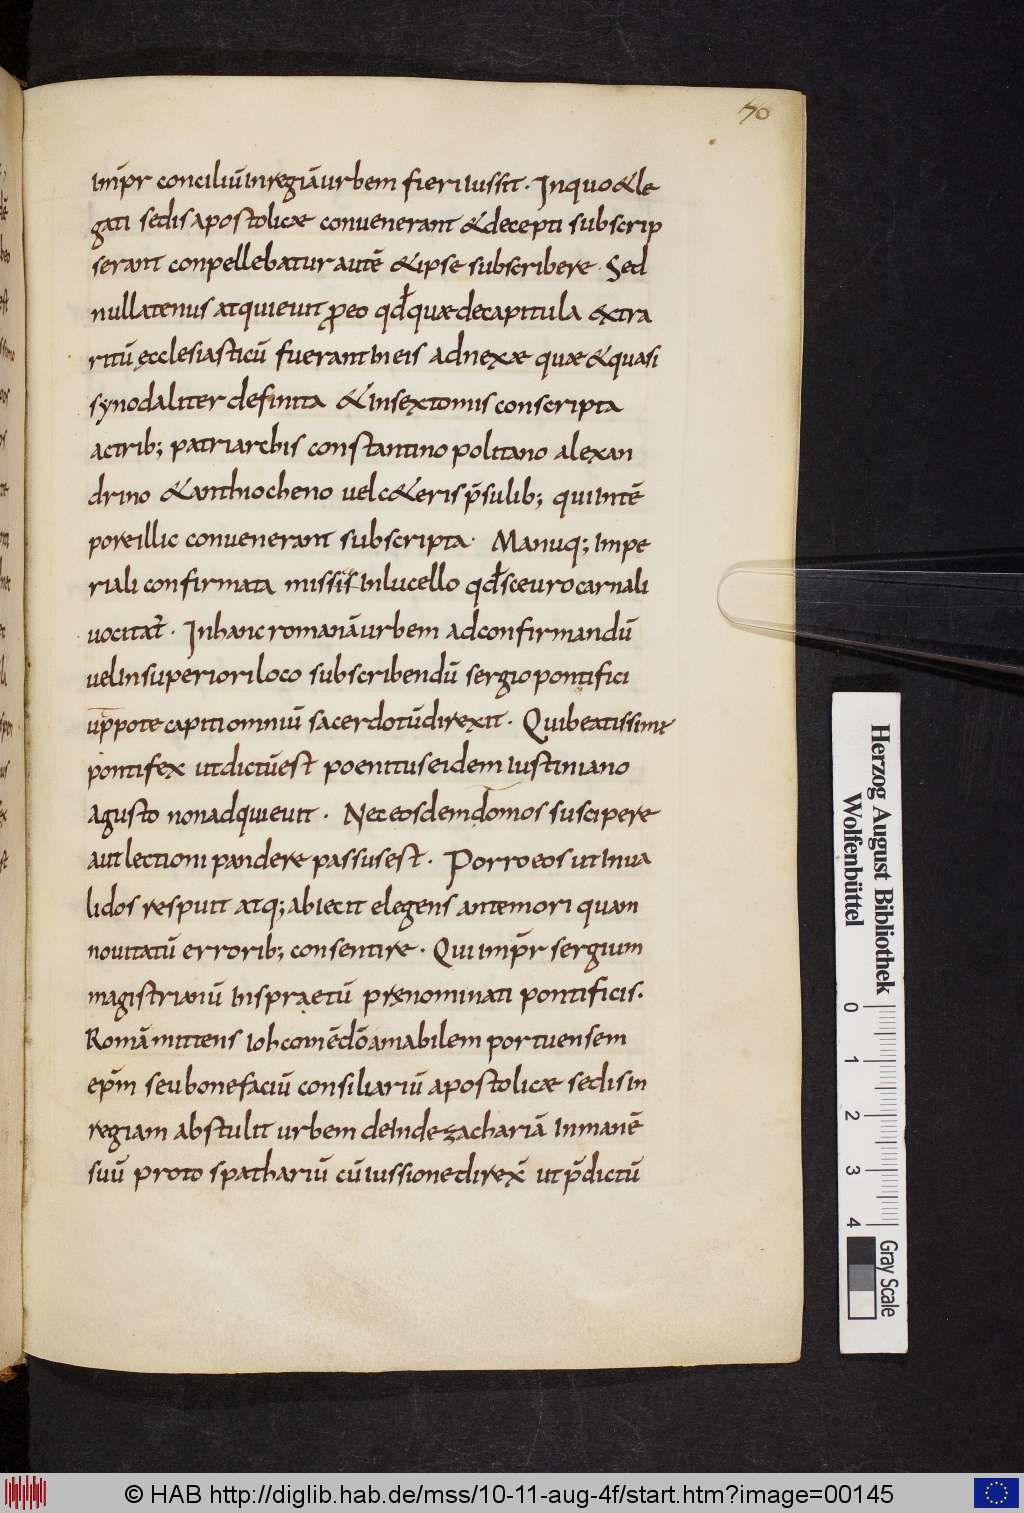 70
imp̄r conciliū inregiā urbem fieri iussit. Inquo & le
gati sedis apostolicae convenerant & decepti subscrip
serant conpellebatur autē & ipse subscribere. Sed
nullatenus atquievit ꝓeo qđ quaedecapitula extra
ritū ęcclesiasticū fuerant ineis adnexae quae & quasi
synodaliter definita & insextomis conscripta
actrib; patriarchis constantinopolitano alexan
drino & anthiocheno vel c&eris p̄sulib; qui intē
poreillic convenerant subscripta. Manuq; impe
riali confirmata missis inlucello qđ sceurocarnali
vocitat̄. Inhanc romanā urbem adconfirmandū
vel insuperiori loco subscribendū sergio pontifici
uppote capiti omniū sacerdotū direxit. Qui beatissime
pontifex ut dictū est poenitus eidem iustiniano
agusto nonadquievit. Nec eosdem domos suscipere
aut lectioni pandere passus est. Porro eos ut inva
lidos respuit atq; abiecit elegens ante mori quam
novitatū errorib; consentire. Qui imp̄r sergium
magistrianū inspraetū pręnominati pontificis.
Romā mittens ioh comēdō amabilem portuensem
ep̄m seu bonefaciū consiliariū apostolicae sedis in
regiam abstulit urbem deinde zachariā inmanē
suū proto spathariū cū iussione direx̄ ut p̄dictū
Herzog August Bibliothek
Wolfenbüttel
0 1 2 3 4
Gray Scale
© HAB http://diglib.hab.de/mss/10-11-aug-4f/start.htm?image=00145